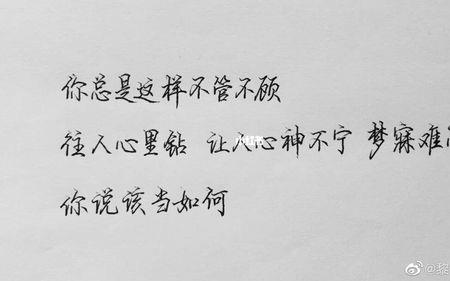 你总是这样不管不顾
往人心里钻 让人心神不宁 梦寐难
你说该当如何
小红书
@黎